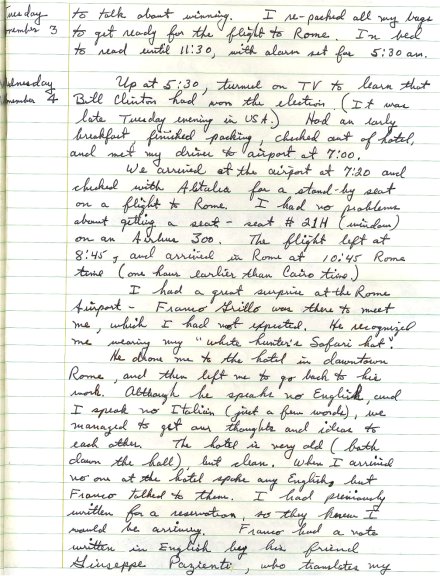 Tuesday
November 3
to talk about winning. I re-packed all my bags
to get ready for the flight to Rome. In bed
to read until 11:30, with alarm set for 5:30 am.
Wednesday
November 4
Up at 5:30, turned on TV to learn that
Bill Clinton had won the election. (It was
late Tuesday evening in USA.) Had an early
breakfast, finished packing, checked out of hotel,
and met my driver to airport at 7:00.
We arrived at the airport at 7:20 and
checked with Alitalia for a stand-by seat
on a flight to Rome. I had no problems
about getting a seat - seat # 21H (window)
on an Airbus 300. The flight left at
8:45, and arrived in Rome at 10:45 Rome
time (one hour earlier than Cairo time.)
I had a great surprise at the Rome
Airport - Franco Grillo was there to meet
me, which I had not expected. He recognized
me wearing my "white hunter's Safari hat".
He drove me to the hotel in downtown
Rome, and then left me to go back to his
work. Although he speaks no English, and
I speak no Italian (just a few words), we
managed to get our thoughts and ideas to
each other. The hotel is very old (bath
down the hall) but clean. When I arrived
no one at the hotel spoke any English, but
Franco talked to them. I had previously
written for a reservation, so they knew I
would be arriving. Franco had a note
written in English by his friend
Giuseppe Pazienti, who translates my